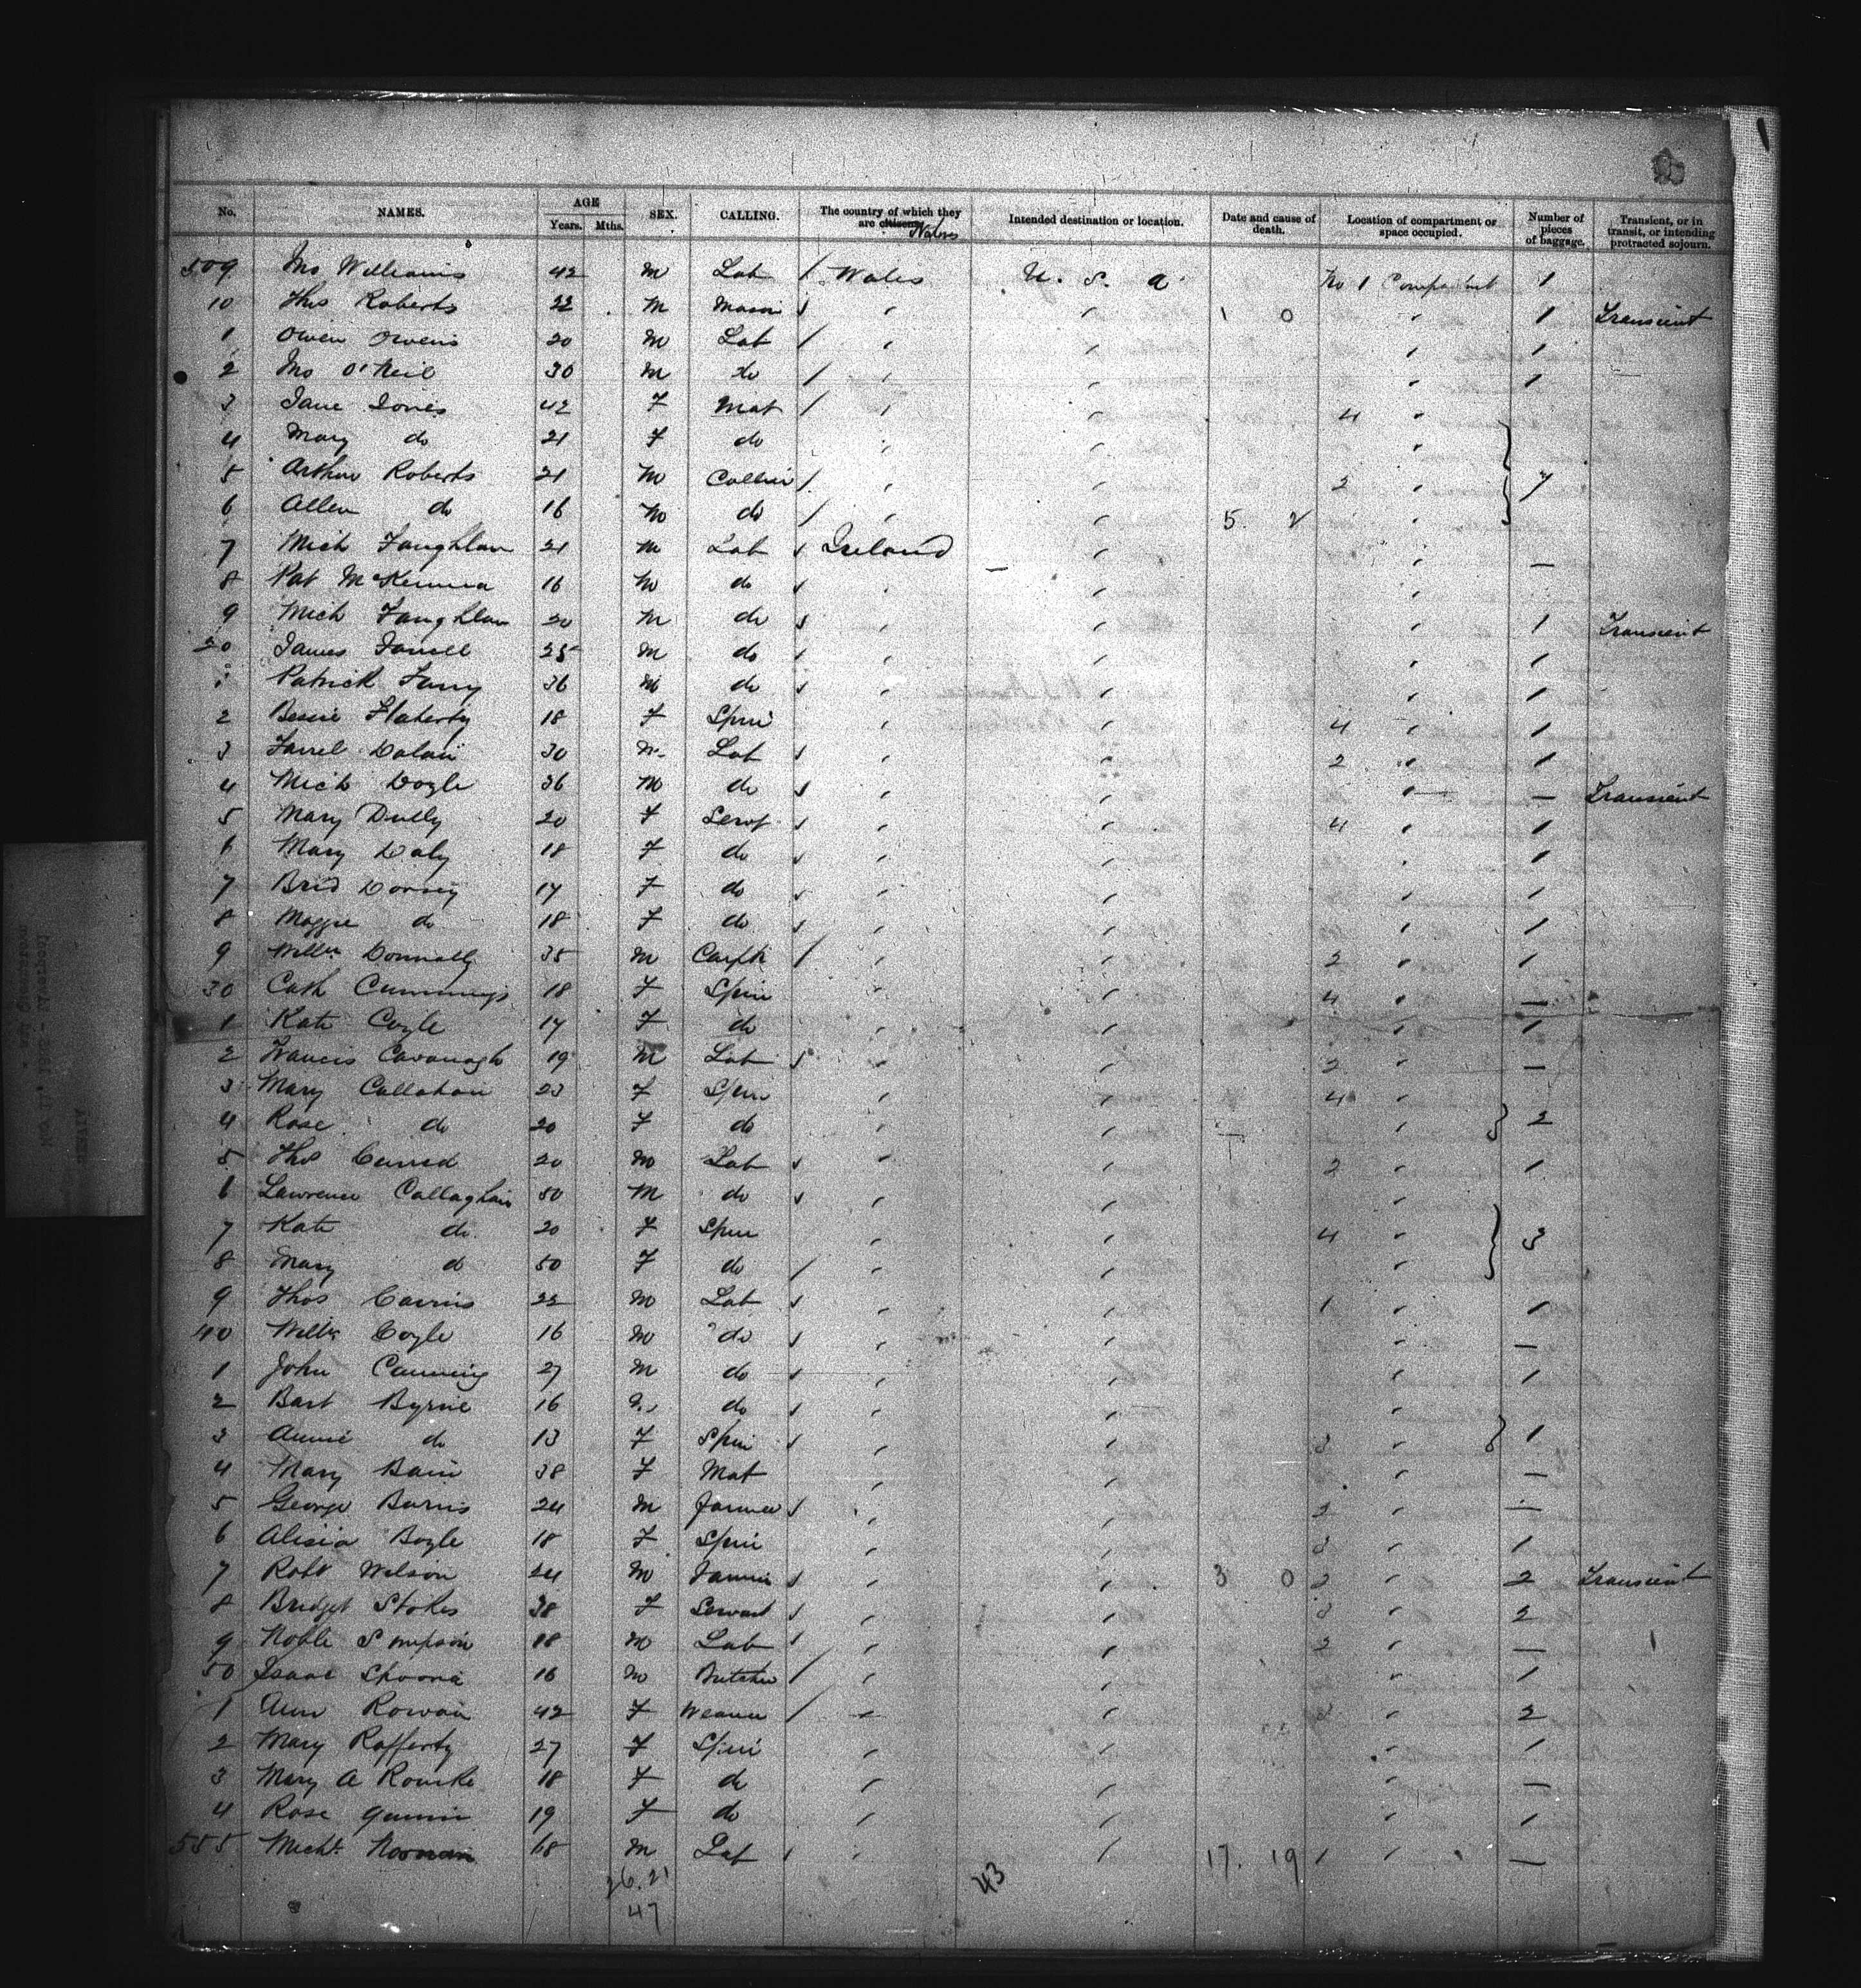 No. NAMES. AGE Years. Mths. SEX. CALLING. The country of which they are citizens Natives Intended destination or location. Date and cause of death. Location of compartment or space occupied. Number of pieces of baggage. Transient, or in transit, or intending protracted sojourn.
509 Jno Williams 42 M Lab / Wales U. S. a. No 1 Compartment 1
10 Thos Roberts 22 M Mason 1 0 1 Transient
1 Owen Owens 20 M Lab / 1
2 Jno O'Neil 30 M do / 1
3 Jane Jones 42 F Mat / 4
4 Mary do 21 F do
5 Arthur Roberts 21 M Collier / 2 7
6 Allen do 16 M do / 5. 2
7 Mich Faughlan 21 M Lab Ireland —
8 Pat McKenna 16 M do
9 Mich Faughlan 20 M do 1 Transient
20 James Farrell 25 M do 1
Patrick 36 M do 1
2 Bessie Flaherty 18 F Spin 4 1
3 Farrel Dolan 30 M Lab 2 1
4 Mich Doyle 36 M do — Transient
5 Mary Dully 20 F Servt 4 1
6 Mary Daly 18 F do 1
7 Brid 17 F do 1
8 Maggie do 18 F do 1
9 Willm Donnolly 35 M Carptr / 2 1
30 Cath Cummings 18 F Spin 4 —
1 Kate Coyle 17 F do 1
2 Francis Cavanagh 19 M Lab 2 —
3 Mary Callahan 23 F Spin 4
4 Rose do 20 F do 2
5 Thos 20 M Lab 2 1
6 Lawrence Callaghan 50 M do
7 Kate do 20 F Spin 4 3
8 Mary do 50 F do /
9 Thos Cairns 22 M Lab 1 1
40 Willm Coyle 16 M do —
1 John Canning 27 M do 1
2 Bart Byrne 16 M do
3 Annie do 13 F Spin 3 1
4 Mary Bain 38 F Mat —
5 George Burns 24 M Farmer 2 —
6 Alisia Boyle 18 F Spin 3 1
7 Robt Wilson 24 M Farmer 3 0 2 2 Transient
8 Bridget Stokes 38 F Servant 3 2
9 Noble Simpson 18 M Lab 2 —
50 Isaac 16 M Butcher / 1
1 Ann Rowan 42 F Weaver / 3 2
2 Mary Rafferty 27 F Spin 1
3 Mary A Rourke 18 F do —
4 Rose 19 F do 1
555 Michl Noonan 68 M Lab 17. 19 1 —
26. 21 43
47